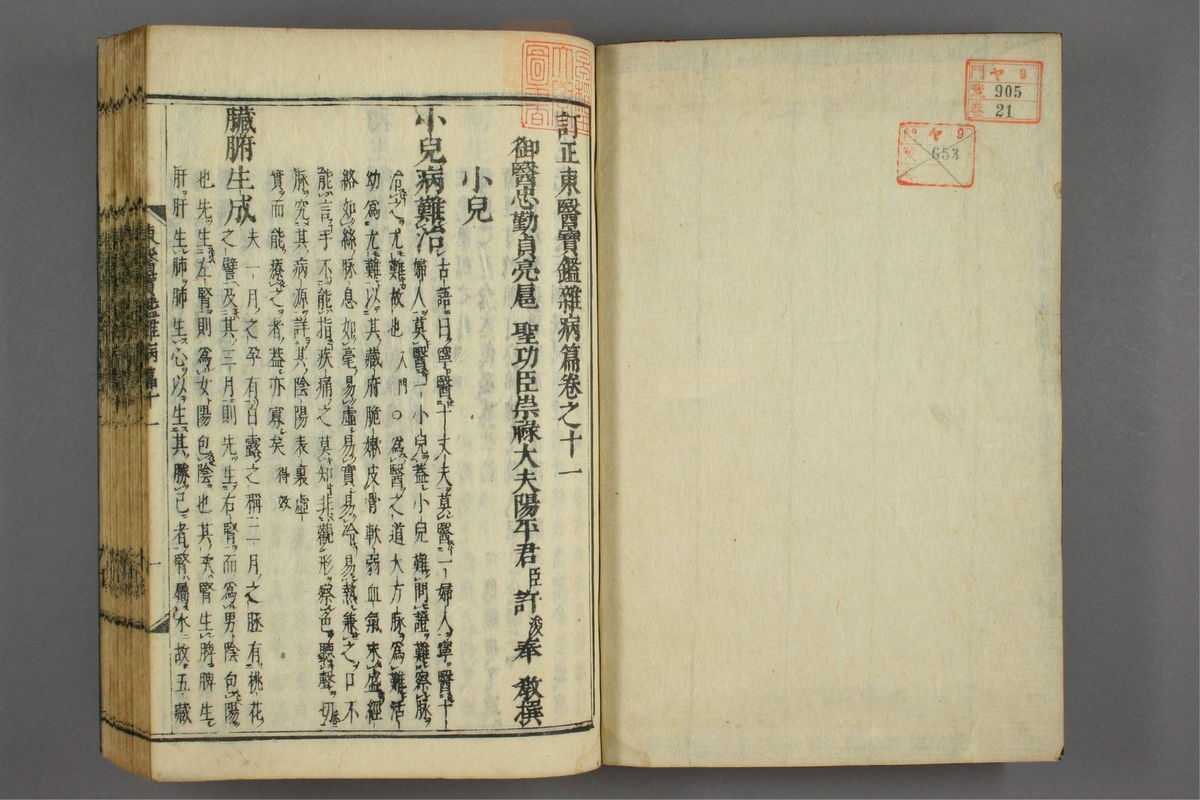 門 ヤ 9
號 905
卷 21
ヤ 9
653
訂正東醫寶鑑雜病篇卷之十一
御醫忠勤貞亮扈 聖功臣崇祿大夫陽平君臣許浚奉 敎撰
小兒
小兒病難治古語曰寧醫十丈夫莫醫一婦人寧醫十
婦人莫醫一小兒蓋小兒難問證難察脉
治之尤難故也入門○爲醫之道大方脉爲難活
幼爲尤難以其藏府脆嫩皮骨軟弱血氣未盛經
絡如絲脉息如毫易虛易實易冷易熱兼之口不
能言手不能指疾痛之莫知非觀形察色聽聲切
脉究其病源詳其陰陽表裏虛
實而能療之者蓋亦寡矣得效
臟腑生成夫一月之孕有白露之稱二月之胚有桃花
之譬及其三月則先生右腎而爲男陰包陽
也先生左腎則爲女陽包陰也其次腎生脾脾生
肝肝生肺肺生心以生其勝己者腎屬水故五臟
東醫寶鑑雜病篇十一 一